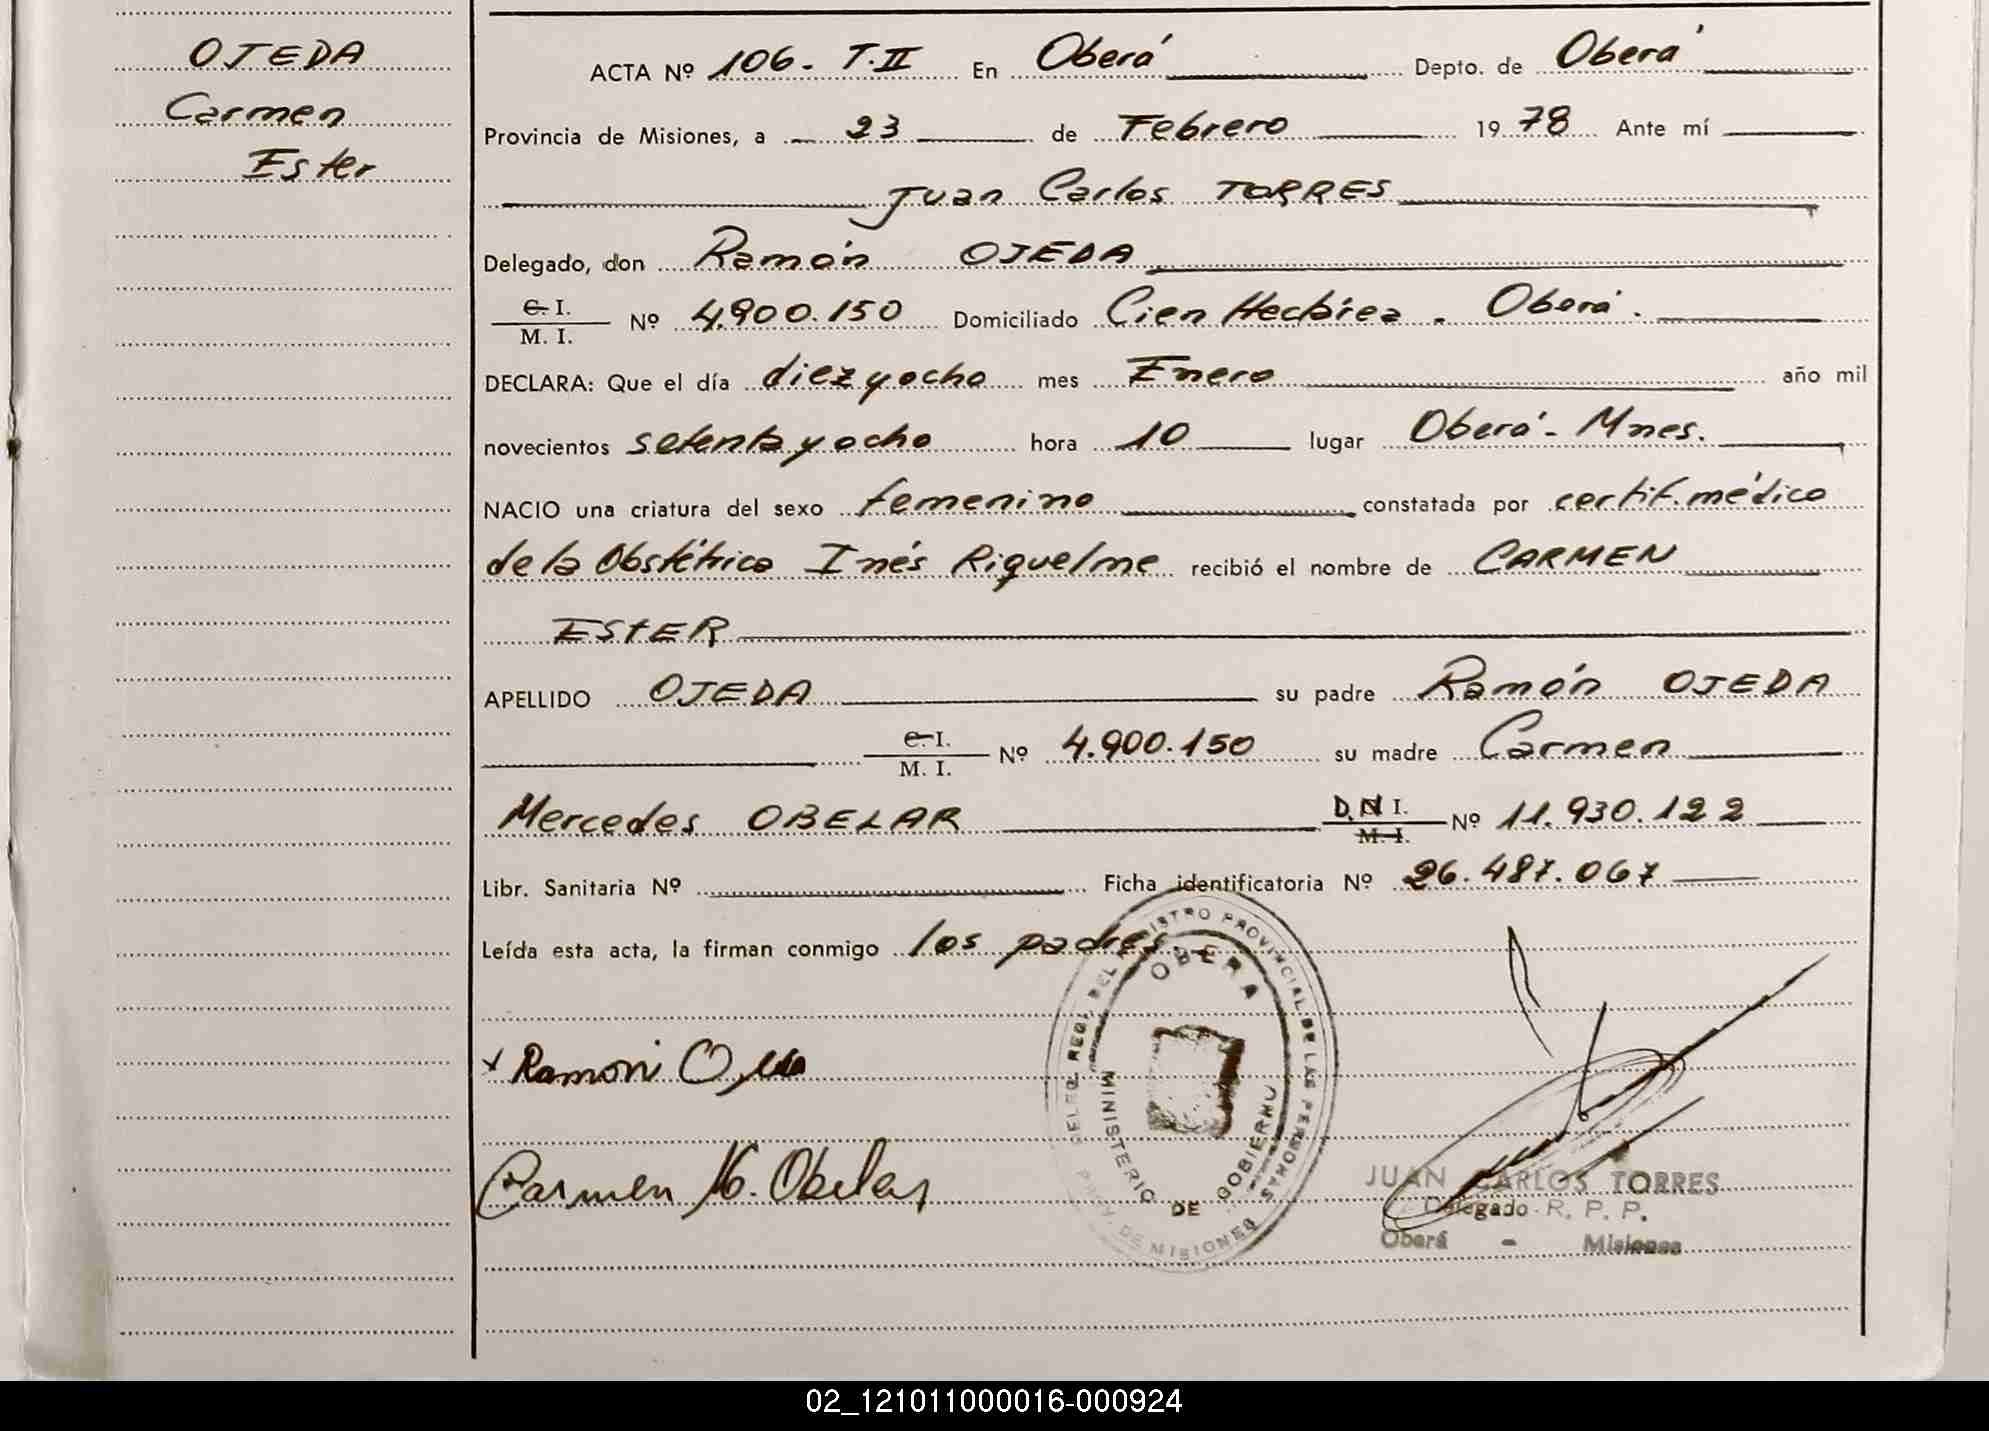 OJEDA
Carmen
Ester
ACTA Nº 106. T. II En Oberá Depto. de Oberá
Provincia de Misiones, a 23 de Febrero 1978 Ante mí
Juan Carlos TORRES
Delegado, don Ramón OJEDA
C. I.
M. I. Nº 4.900.150 Domiciliado Cien Hectárea. Oberá.
DECLARA: Que el día diez y ocho mes Enero año mil
novecientos setenta y ocho hora 10 lugar Oberá - Mnes.
NACIO una criatura del sexo femenino constatada por certif. médico
de la Obstétrica Inés Riquelme recibió el nombre de CARMEN
ESTER
APELLIDO OJEDA su padre Ramón OJEDA
C. I.
M. I. Nº 4.900.150 su madre Carmen
Mercedes OBELAR D.N I.
M. I. Nº 11.930.122
Libr. Sanitaria Nº Ficha identificatoria Nº 26.487.067
Leída esta acta, la firman conmigo los padres
DELEG. REGI. DEL REGISTRO PROVINCIAL DE LAS PERSONAS
OBERA
MINISTERIO DE GOBIERNO
PROV. DE MISIONES
x Ramon
Carmen M. Obelar
JUAN CARLOS TORRES
Delegado R. P. P.
Oberá - Misiones
02_121011000016-000924